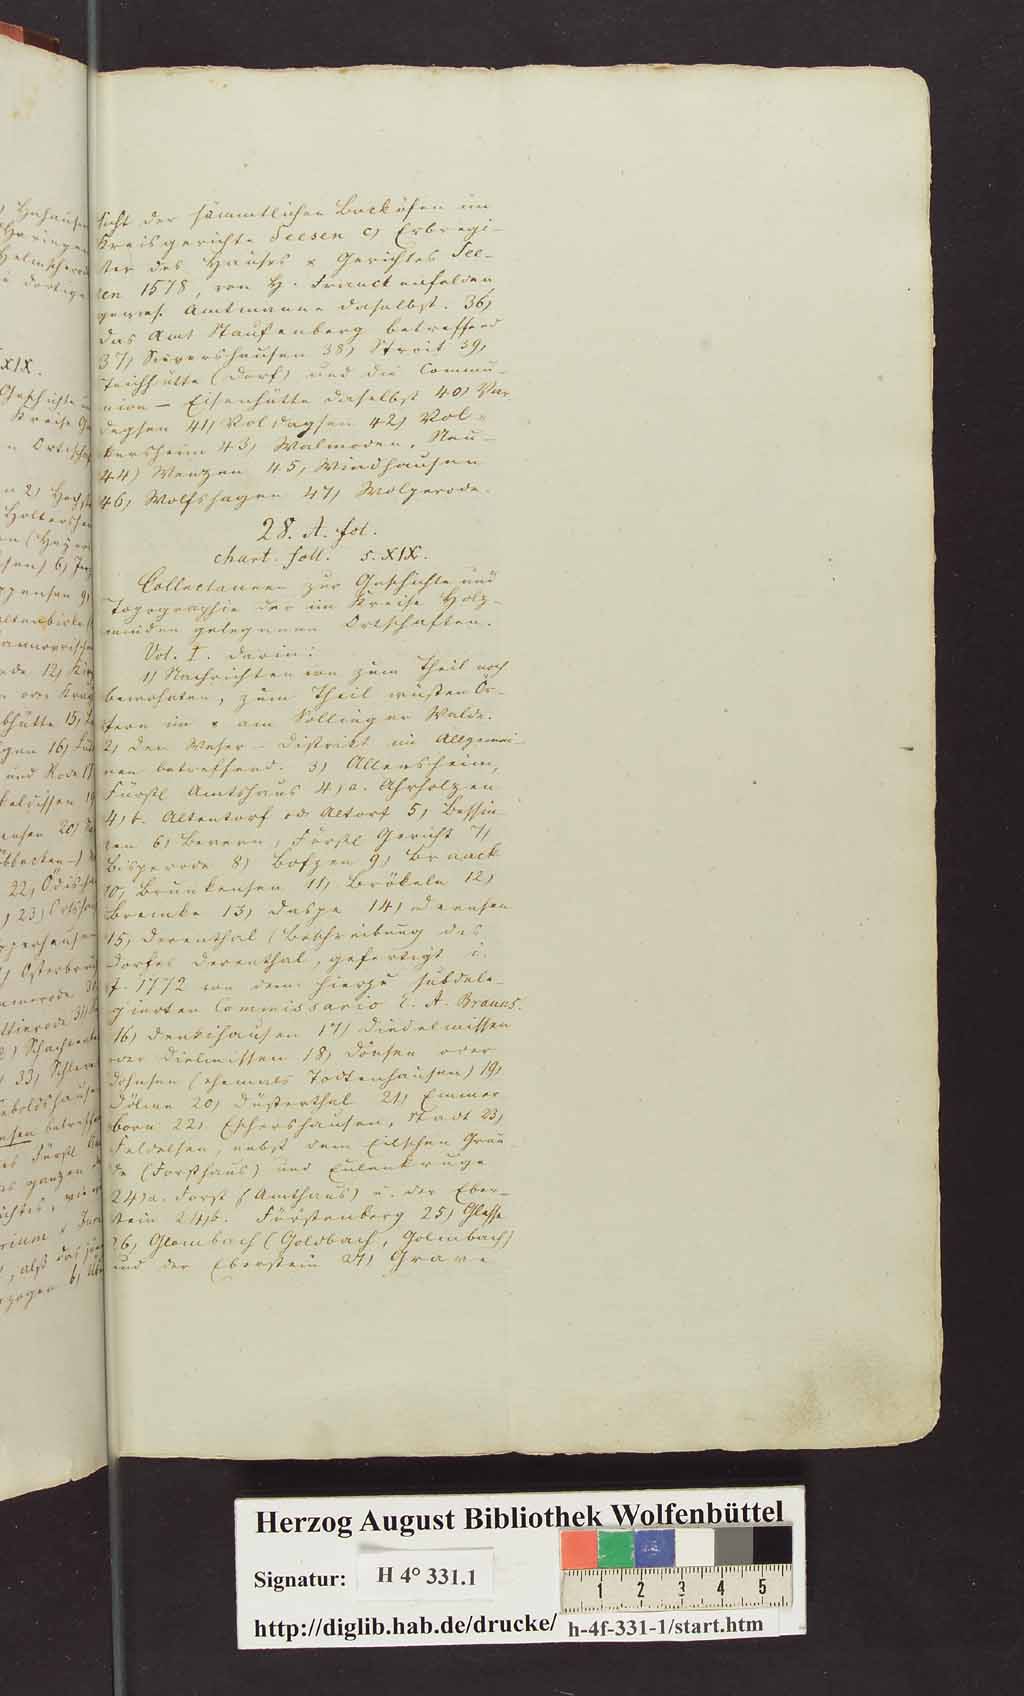 sicht der sämmtlichen Backöfen im
Kreisgerichte Seesen c) Erbregi-
ster des Hauses & Gerichtes See-
sen 1578, von H. Franckenfelden
gewes. Amtmanne daselbst. 36)
das Amt Staufenberg betreffend
37) Sievershausen 38) Stroit 39)
Teichhütte (Dorf) und die Commu-
nion-Eisenhütte daselbst 40) Var
degsen 41) Voldagsen 42) Vol-
kersheim 43) Walmoden, Neu-
44) Wenzen 45) Windhausen
46) Wolfshagen 47) Wolperode.
28. A. fol.
chart. foll. s. XIX.
Collectaneen zur Geschichte und
Topographie der im Kreise Holz-
minden gelegenen Ortschaften.
Vol. I. darin:
1) Nachrichten von zum Theil noch
bewohnten, zum Theil wüsten Ör-
tern im & am Sollinger Walde.
2) den Weser-Distrikt im Allgemei-
nen betreffend. 3) Allersheim,
Fürstl Amtshaus 4) a. Ahrholzen
4) b. Altendorf od Altorf 5) Bessin-
gen 6) Bevern, Fürstl Gericht 7)
Bisperode 8) Bofzen 9) Braack
10) Brunkensen 11) Brökeln 12)
Bremke 13) Daspe 14) Deensen
15) Derenthal (Beschreibung des
Dorfes Derenthal, gefertigt i.
J. 1772 von dem hierzu subdele-
gierten Commissario E. A. Brauns.
16) Denkihausen 17) Diedelmissen
oder Dielmissen 18) Dönsen oder
Dohnsen (ehemals Todtenhausen) 19)
Dölme 20) Düsterthal 21) Emmer
born 22) Eschershausen, Stadt 23)
Feldelsen, nebst dem Eilschen Grun
de (Forsthaus) und Eulenkruge
24) a. Forst (Amthaus) u. der Eber-
stein 24) b. Fürstenberg 25) Glesse
26) Glombach (Goldbach, Golmbach)
und der Eberstein 27) Grave
Herzog August Bibliothek Wolfenbüttel
Signatur: H 4° 331.1
1 2 3 4 5
http://diglib.hab.de/drucke/ h-4f-331-1/start.htm